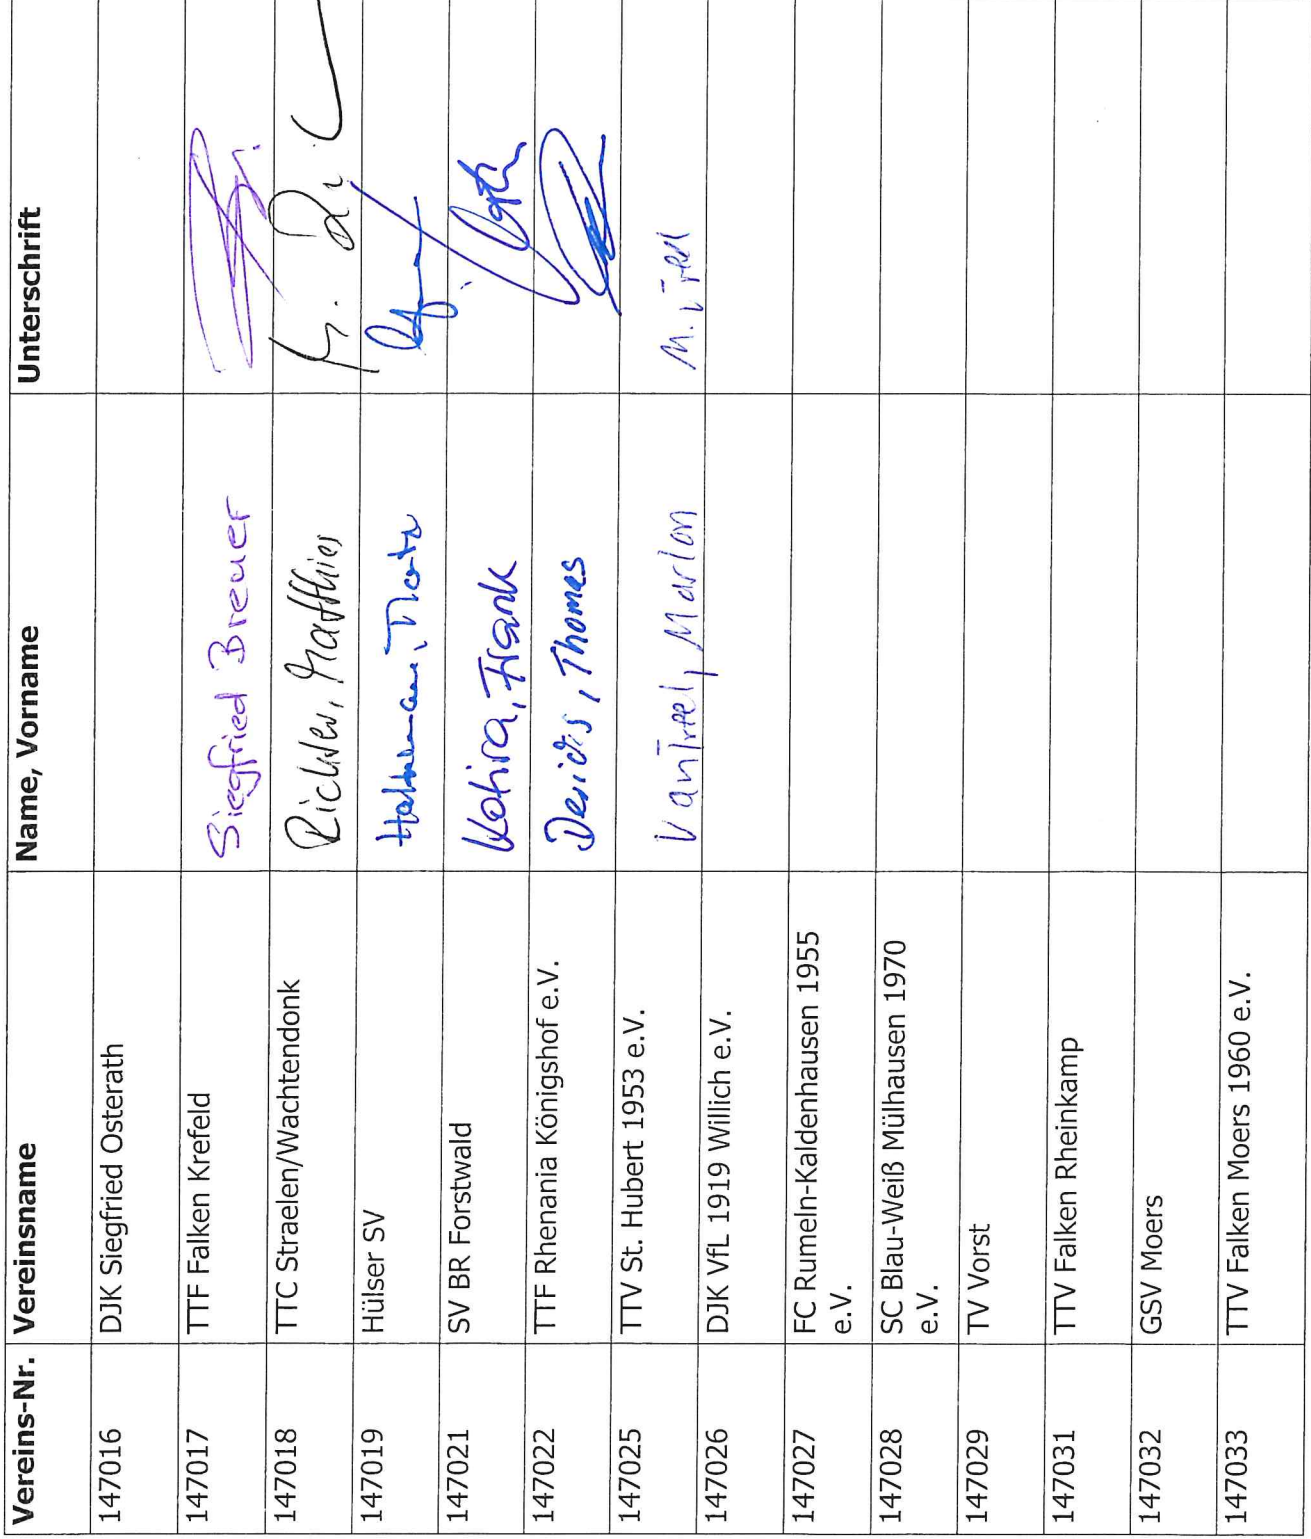 Vereins-Nr. Vereinsname Name, Vorname Unterschrift
147016 DJK Siegfried Osterath
147017 TTF Falken Krefeld Siegfried Breuer
147018 TTC Straelen/Wachtendonk Richter, Matthias
147019 Hülser SV
147021 SV BR Forstwald Kohira, Frank
147022 TTF Rhenania Königshof e.V. Thomas
147025 TTV St. Hubert 1953 e.V. Van Treel, Marlon
147026 DJK VfL 1919 Willich e.V.
147027 FC Rumeln-Kaldenhausen 1955
e.V.
147028 SC Blau-Weiß Mülhausen 1970
e.V.
147029 TV Vorst
147031 TTV Falken Rheinkamp
147032 GSV Moers
147033 TTV Falken Moers 1960 e.V.